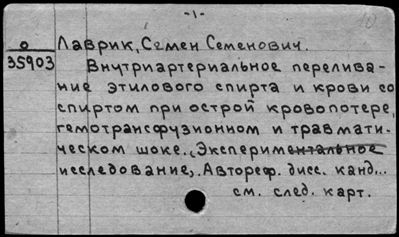 -1-
10
О
35903
Лаврик, Семен Семенович.
Внутриартериальное перелива-
ние этилового спирта и крови со
спиртом при острой кровопотере,
гемотрансфузионном и травмати-
ческом шоке. „Экспериментальное
исследование„. Автореф. дисс. канд...
см. след. карт.